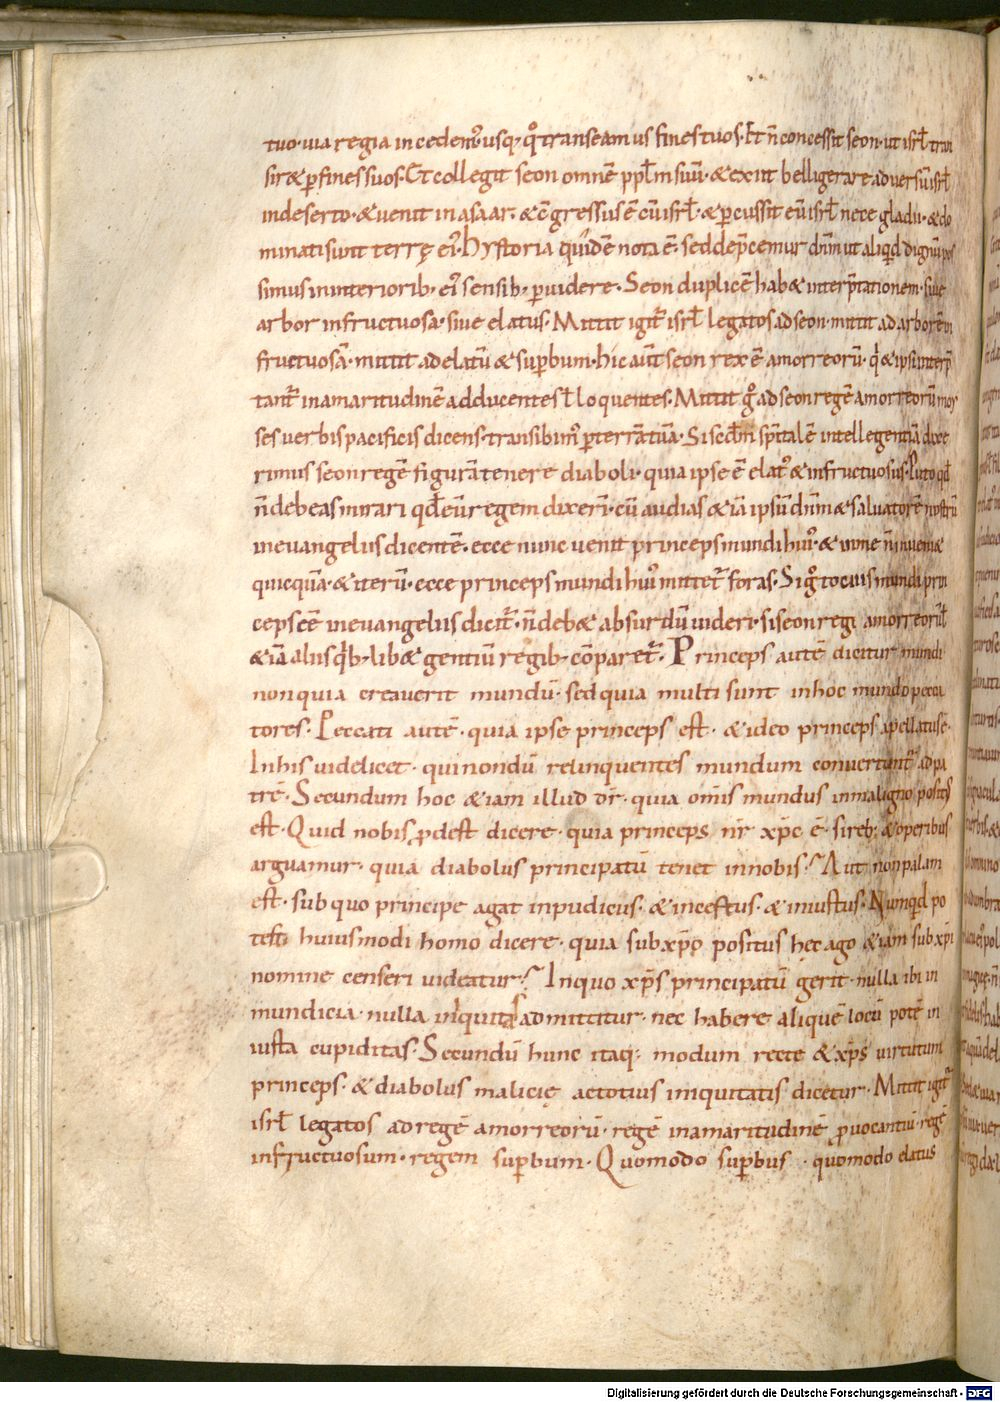 tuo· uia regia incedemꝰ usq; q°transeamus fines tuos· Et n̄ concessit seon· ut isrł tran
sir& p̱ fines suos· Et collegit seon omnē ppłm suū· & exiit belligerare aduersū isrł
in deserto· & uenit in asaar· & c̄gressus ē cū isrł· & p̱cussit eū isrł nece gladii· & do
minati sunt terrę eiꝰ· hystoria quidē nota ē· sed dep̄cemur dnm̄ ut aliqd dignū pos
simus in interiorib; eiꝰ sensib; p̱uidere· Seon duplicē hab& interp̄tationem· siue
arbor infructuosa· siue elatus· Mittit igit̄ isrł legatos ad seon· mittit ad arborē in
fructuosā· mittit ad elatū & sup̱bum· hic aūt seon rex ē amorreorū· q̇ & ipsi interp̄
tant̄ in amaritudinē adducentes ł loquentes· Mittit g° ad seon regē amorreorū moy
ses uerbis pacificis dicens· transibimꝰ p̱ terrā tuā· Si scdm̄ sp̄italē intellegentiā dixe
rimus seon regē figurā tenere diaboli· quia ipse ē elatꝰ & infructuosus· Puto qd̄
n̄ debeas mirari qd̄ eū regem dixerī· cū audias &iā ipsū dnm̄ & saluatorē nostrū
in euangeliis dicentē· ecce nunc uenit princeps mundi huiꝰ· & in me n̄ inueni&
quicquā· & iterū· ecce princeps mundi huiꝰ mittet̄ foras· Si g° tocius mundi prin
ceps ēē in euangeliis dicit̄· n̄ deb& absurdū uideri· si seon regi amorreorū ł
&iā aliis q̇b; lib& gentiū regib; cōparet̄· Princeps autē dicitur mundi
non quia creauerit mundū· sed quia multi sunt in hoc mundo pecca
tores· Peccati autē· quia ipse princeps est· & ideo princeps apellatus ē·
In his uidelicet· qui nondū relinquentes mundum conuertunt̄ ad pa
trē· Secundum hoc &iam illud dr̄· quia om̄is mundus in maligno positꝰ
est· Quid nobis p̱dest dicere· quia princeps nr̄ xp̄c ē· si reb; & operibus
arguamur· quia diabolus principatū tenet in nobis? Aut non palam
est· sub quo principe agat inpudicus· & incestus· & iniustus· Nunqd po
test huiusmodi homo dicere· quia sub xp̄o positus hęc ago &iam sub xp̄i
nomine censeri uideatur? In quo xp̄s principatū gerit· nulla ibi in
mundicia· nulla iniquitas admittitur· nec habere aliquē locū potē in
iusta cupiditas· Secundū hunc itaq; modum recte & xp̄s uirtutum
princeps· & diabolus malicię ac totius iniquitatis dicetur· Mittit igit̄
isrł legatos ad regē amorreorū· regē in amaritudinē p̱uocantiū· regē
infructuosum· regem sup̱bum· Quomodo sup̱bus · quomodo elatus
Digitalisierung gefördert durch die Deutsche Forschungsgemeinschaft - DFG